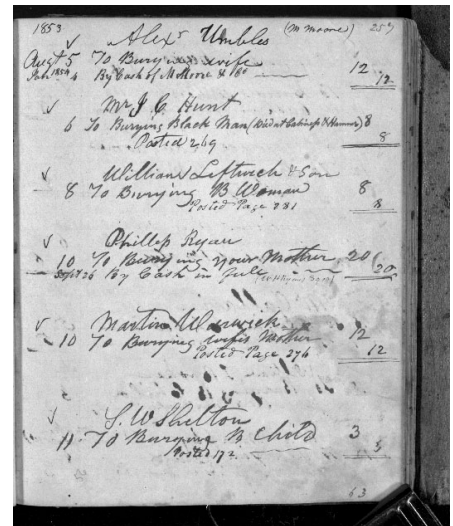 1853 (M Moore) 257
Alexr Umbles
Augt 5 To Burying wife 12
Jan 1854 4 By Cash of M Moore & 12
Mr J C Hunt
6 To Burying Black Man (Died at Cabiness & Hamner) 8
Posted 269 8
William Leftwich & Son
8 To Burying B Woman 8
Posted Page 281 8
Phillip Ryan
10 To Burying your Mother 20
Sept 26 By Cash in full 20
Martin Warwick
10 To Burying wifes Mother 12
Posted Page 276 12
S. W Shelton
11 To Burying B Child 3
Posted 172 3
63